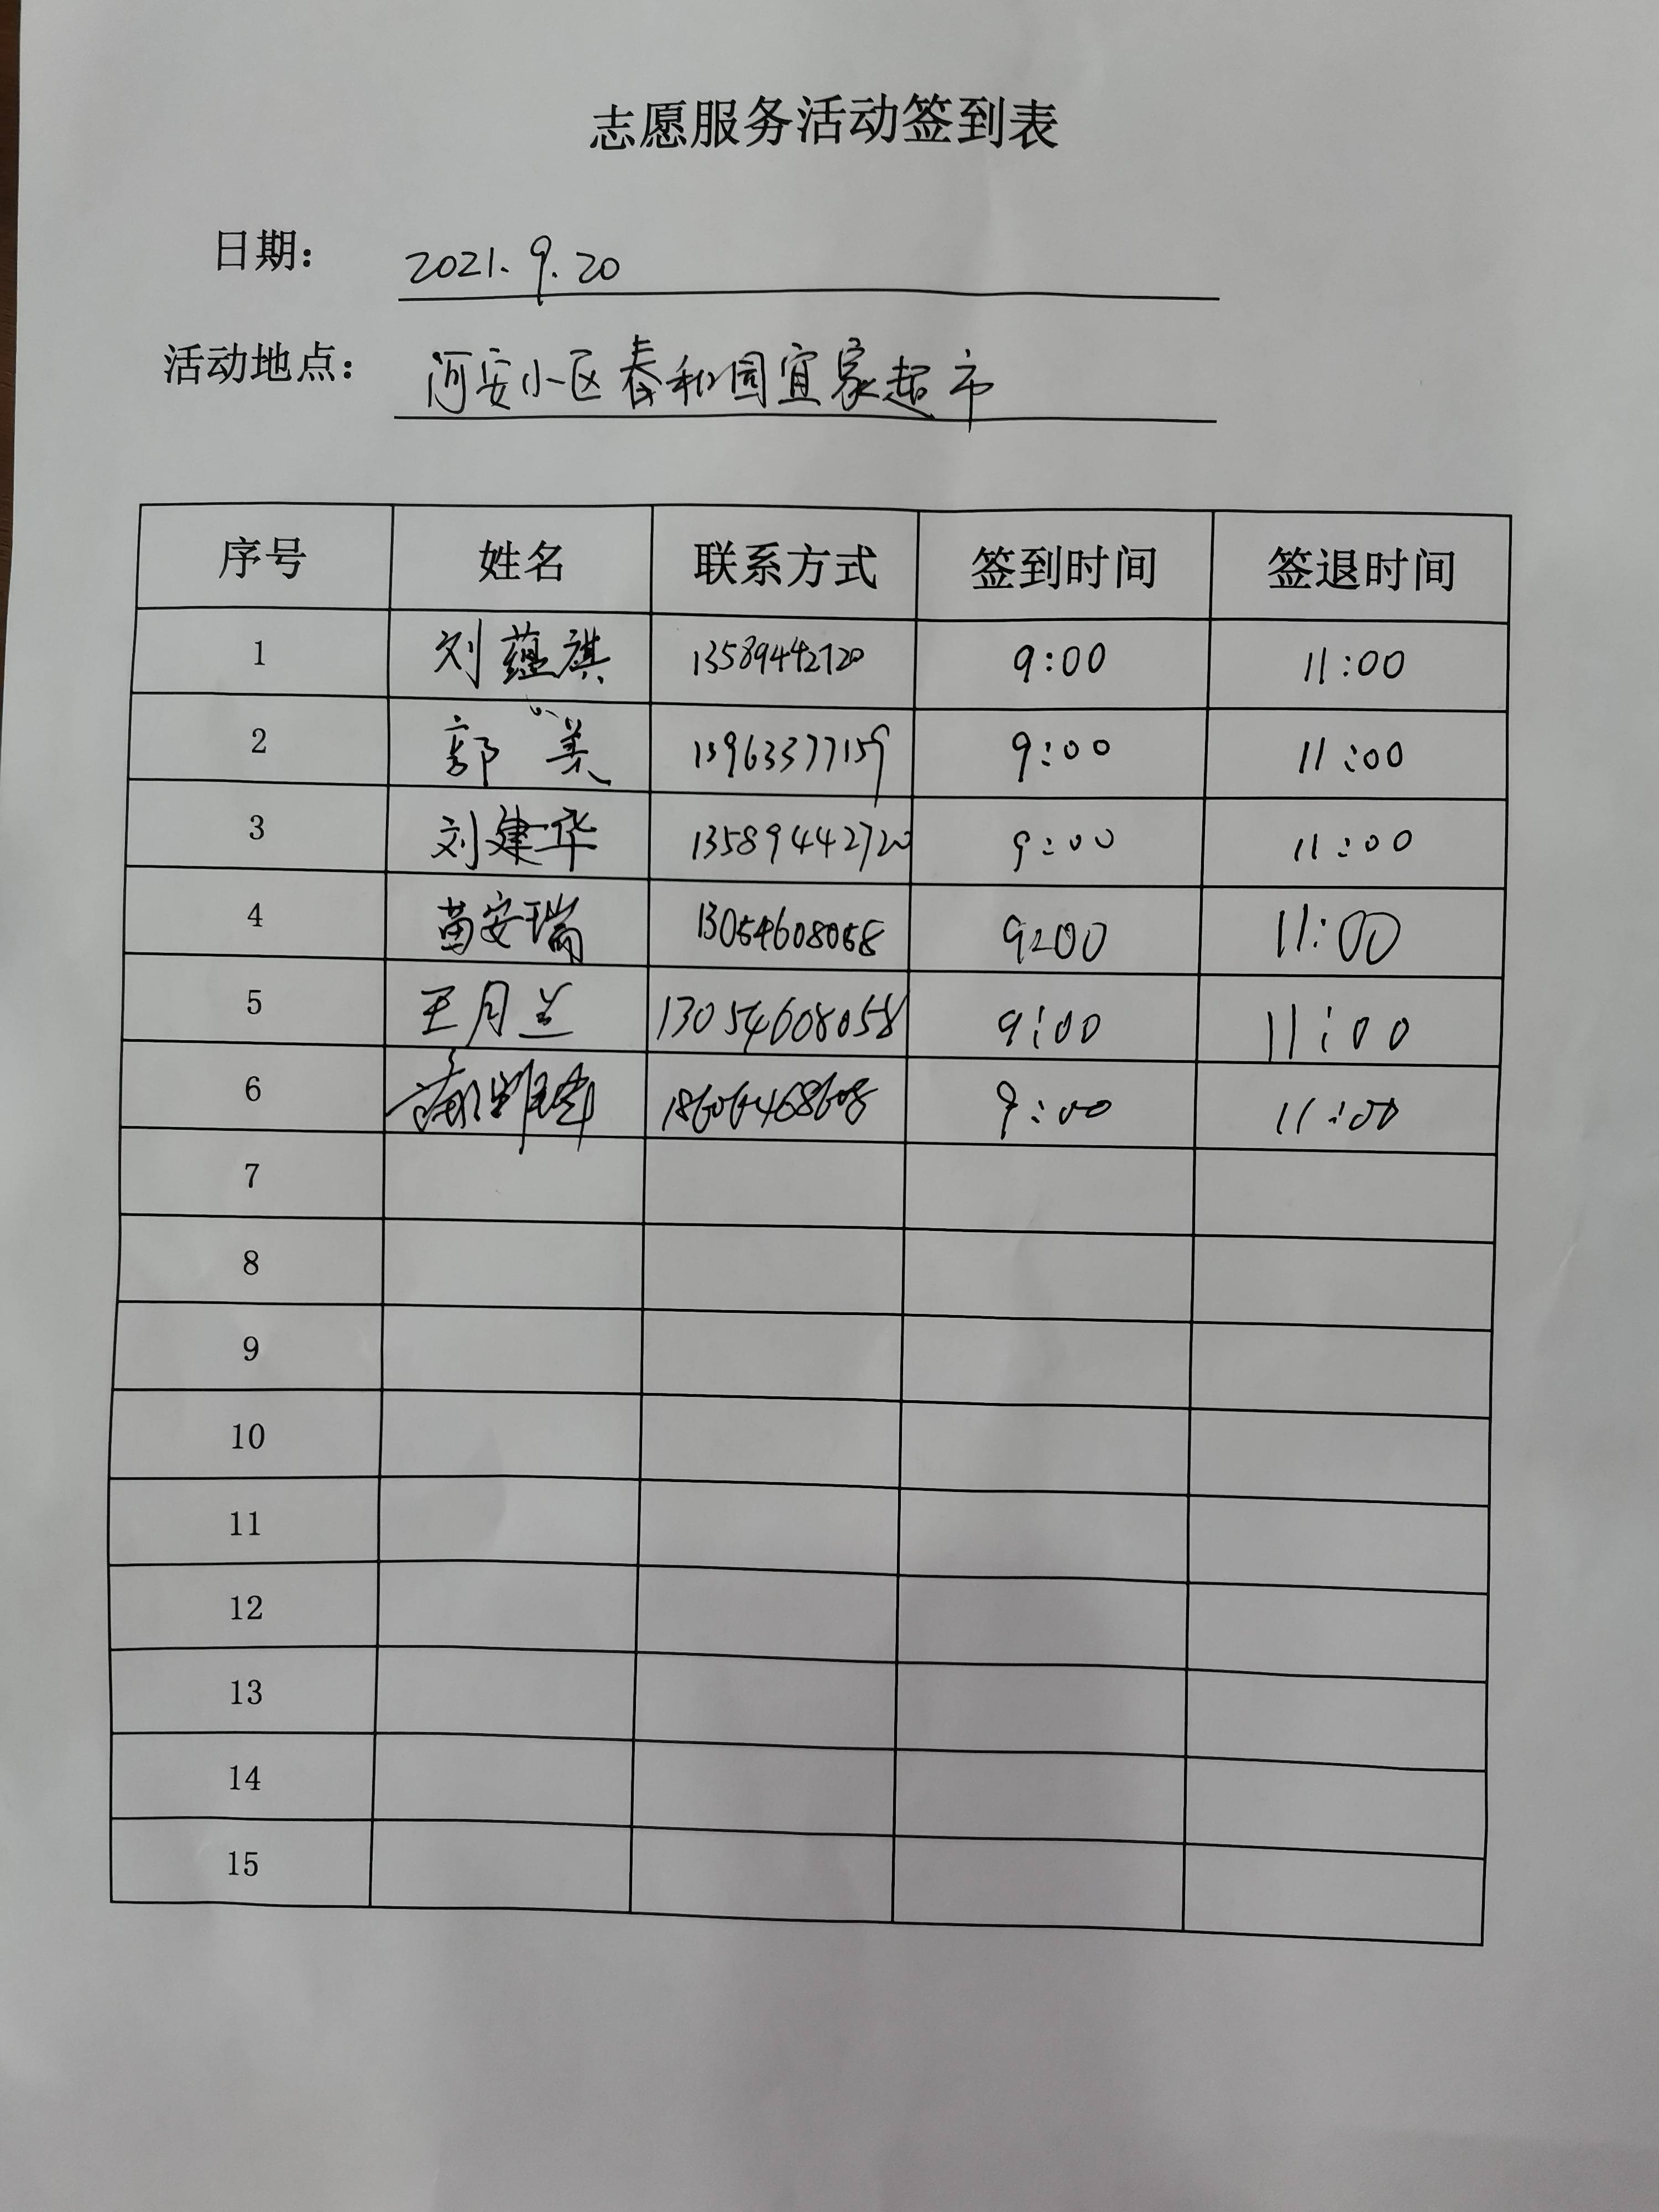 志愿服务活动签到表
日期： 2021.9.20
活动地点： 河安小区春和园宜家超市
序号 姓名 联系方式 签到时间 签退时间
1 刘蕴祺 13589442720 9:00 11:00
2 郭美 15963377159 9:00 11:00
3 刘建华 13589442720 9:00 11:00
4 苗安瑞 13054608058 9:00 11:00
5 王月兰 13054608058 9:00 11:00
6 18606468608 9:00 11:00
7
8
9
10
11
12
13
14
15